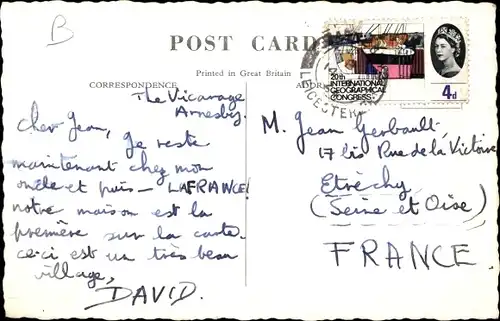 B
POST CARD
Printed in Great Britain
CORRESPONDENCE
20th
INTERNATIONAL
GEOGRAPHICAL
CONGRESS
4d
LEICESTER
The Vicarage
Arnesby.
Cher Jean, Je reste
maintenant chez mon
oncle et puis — LAFRANCE!
notre maison est la
première sur la carte.
ce-ci est un très beau
village,
DAVID.
M. Jean Gerbault,
17 bis Rue de la Victoire
Etréchy
(Seine et Oise)
FRANCE.